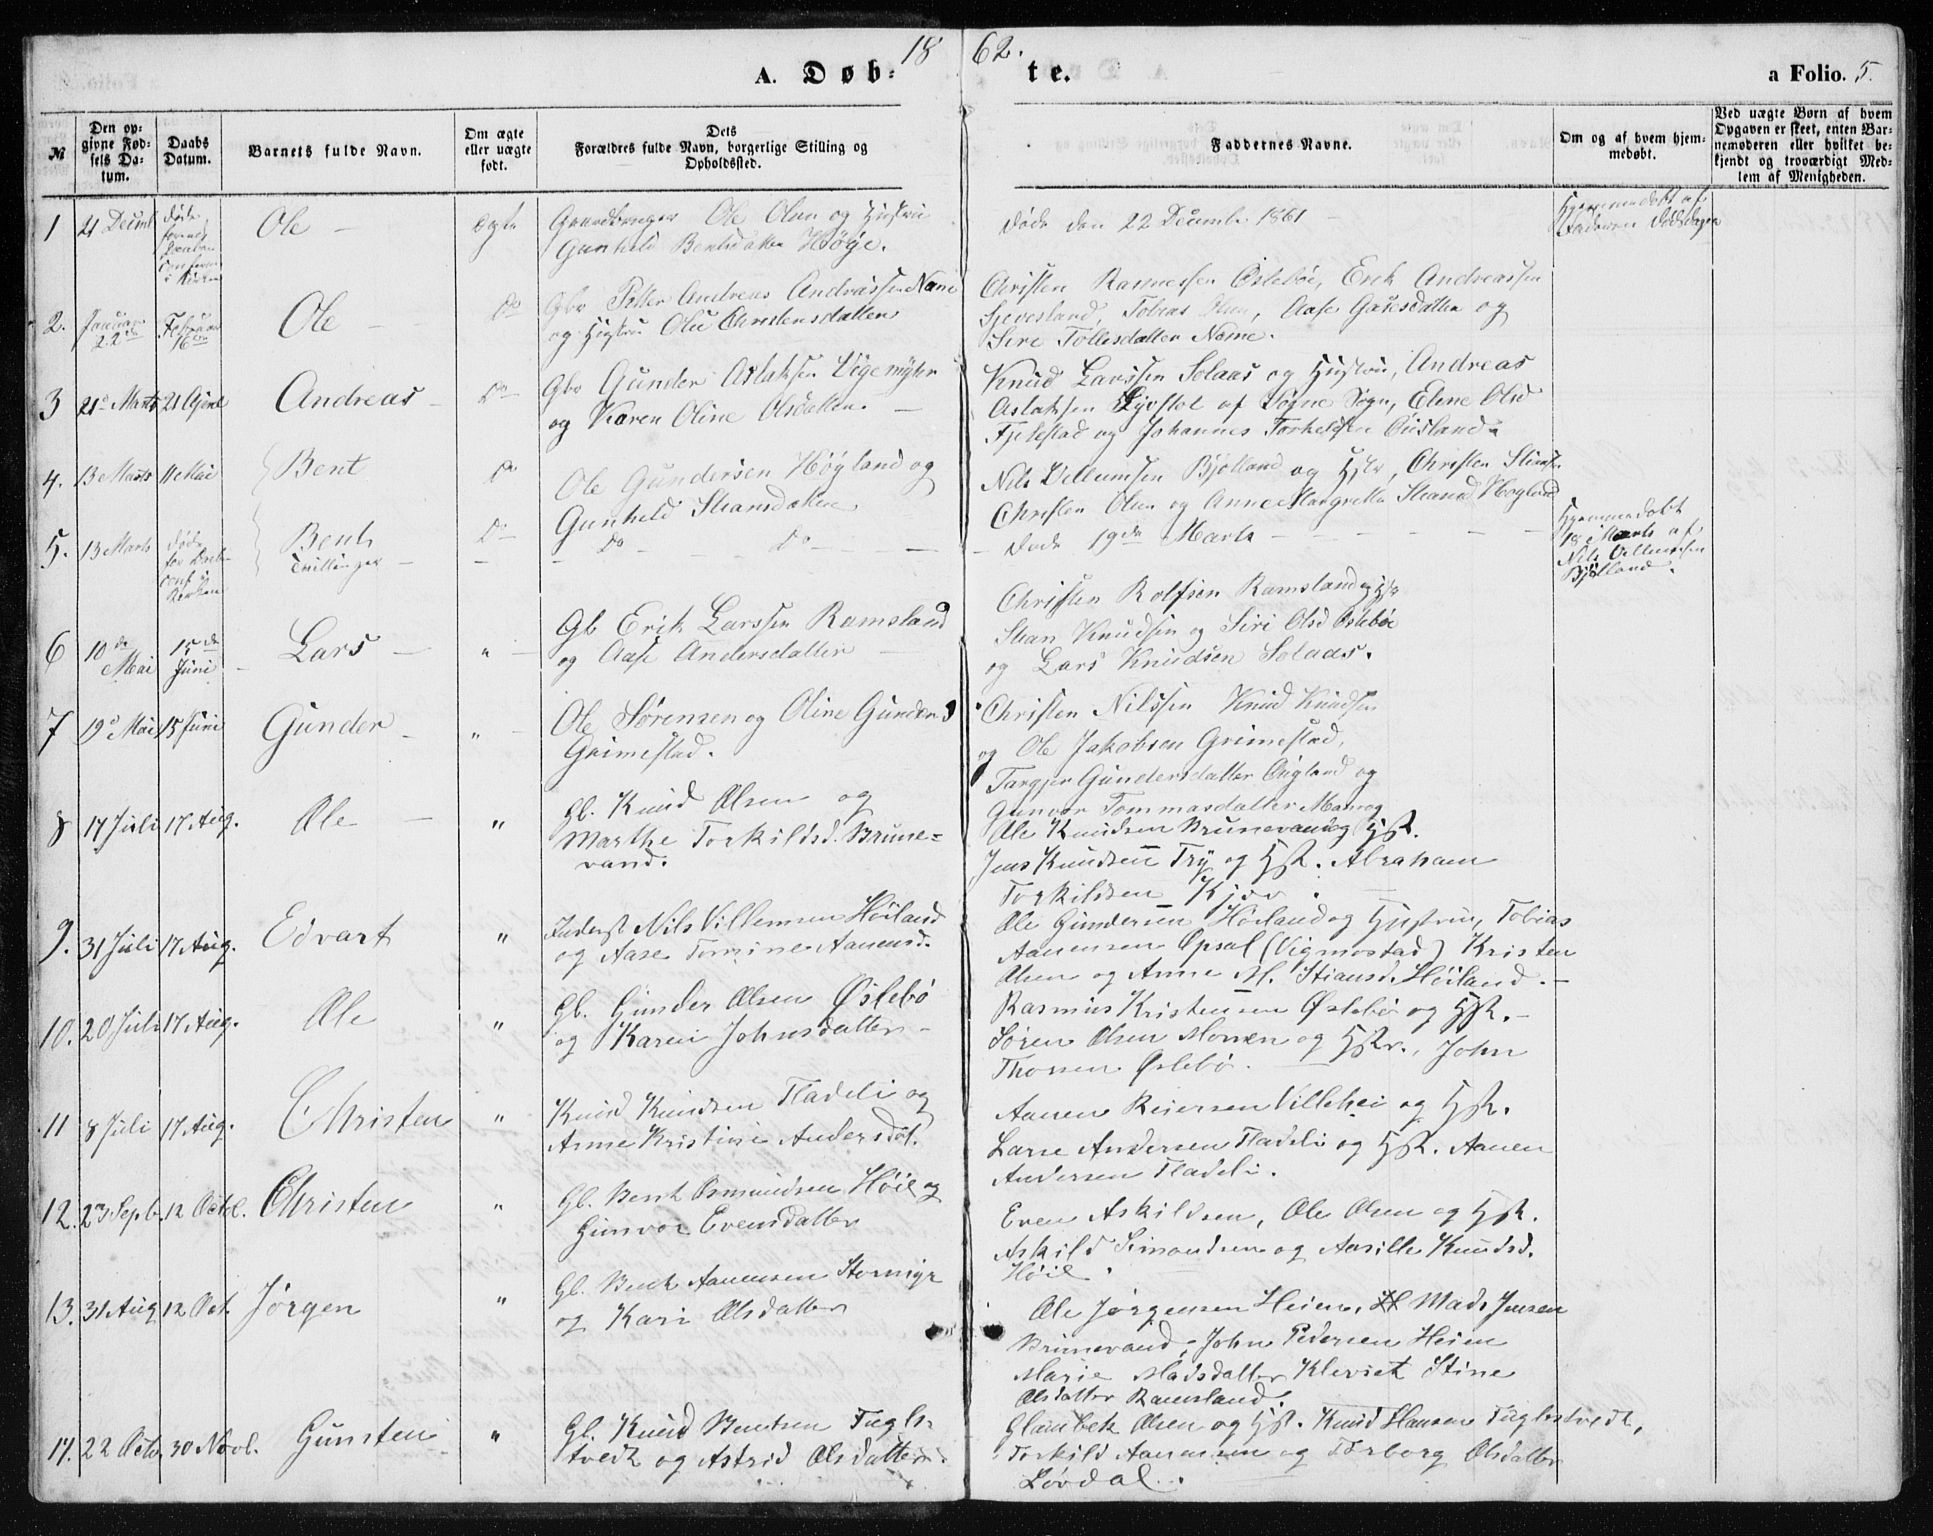 1862.
A. Døbte.
a Folio. 5.
№
Den opgivne Fødsels Datum.
Daabs Datum.
Barnets fulde Navn.
Om ægte eller uægte født.
Dets Forældres fulde Navn, borgerlige Stilling og Opholdssted.
Faddernes Navne.
Om og af hvem hjemmedøbt.
Ved uægte Børn af hvem Opgaven er skeet, enten Barnemoderen eller hvilket bekjendt og troværdigt Medlem af Menigheden.
1
21 Decmb
Døde
i Kirken
Ole
ægte
Gaardbruger Ole Olsen og Hustru
Gunhild Bentsdatter Høÿe.
Døde den 22 December 1861
Hjemmedøbt af
Dødsdagen
2.
Januar 22de
Februar 16de
Ole
Do
Gbr Peter Andreas Andreassen Nome
og Hustru Olu Christensdatter
Christen Rasmussen Øslebøe, Erik Andreassen
Sjevesland, Tobias Olsen, Aase Gabrielsdatter og
Sire Tollesdatter Nome.
3
21d Marts
21 April
Andreas
Do
Gbr Gunder Aslaksen Vigemyhr
og Karen Oline Olsdatter.
Knud Larssen Solaas og Hustru, Andreas
Aslaksen Lyvstol af Søgne Sogn, Elene Olsd
Fjelestad og Johannes Torkeldsen Øusland.
4.
13 Marts
11 Mai
Bent
Do
Ole Gundersen Høÿland og
Gunhild Stiansdatter
Nils Vellumsen Bjolland og Hstr, Christen Stiansen
Christen Olsen og Anne Margrethe Stiansd Høgland
5.
13 Marts
Døde
for Daabs
Conf i
Kirken
Bent
Tvillinger
Do
Do Do
Døde 19de Marts
Hjemmedøbt
18 Marts af
Nils Vellumsen
Bjolland.
6
10de Mai
15de Juni
Lars
"
Gb Erik Larssen Ramsland
og Aase Andersdatter
Christen Rolfsen Ramsland og Hstr
Stian Knudsen og Siri Olsd Oslebøe
og Lars Knudsen Solaas.
7
19d Mai
15 Juni
Gunder
"
Ole Sørensen og Oline Gunders
Grimestad.
Christen Nilssen Knud Knudsen
og Ole Jakobsen Grimestad,
Targjer Gundersdatter Øugland og
Gunvor Tommasdatter
8
17 Juli
17 Aug.
Ole
"
Gb. Knud Olsen og
Marthe Torkildsd. Brune=
vand.
Ole Knudsen Brunevand og Hst.
Jens Knudsen Try og Hst. Abraham
Torkildsen Kjær.
9.
31 Juli
17 Aug.
Edvart
"
Inderst Nils Villemsen Høiland
og Aase Tomine Aanensd.
Ole Gundersen Høiland og Hustru, Tobias
Aanensen Opsal (Vigmostad) Kristen
Olsen og Anne M. Stiansd. Høiland.
10.
20 Juli
17 Aug.
Ole
"
Gb. Gunder Olsen Øslebö
og Karen Johnsdatter
Rasmus Kristensen Øslebö og Hst.
Søren Olsen Monen og Hstr., John
Thorsen Øslebö.
11
8 Juli
17 Aug.
Christen
"
Knud Knudsen Fladeli og
Anne Kristine Andersdat.
Aanen Reiersen Villehei og Hst.
Larse Andersen Fladeli og Hst. Aanen
Andersen Fladeli.
12.
23 Septb.
12 Octl.
Christen
"
Gb. Bent Osmundsen Høie og
Gunvor Evensdatter
Even Askildsen, Ole Olsen og Hst.
Askild Simondsen og Aasille Knudsd.
Høie.
13.
31 Aug
12 Oct
Jørgen
"
Gb. Bent Aanensen Stormyr
og Kari Olsdatter
Ole Jørgensen Heien, Mads Jensen
Brunevand, John Pedersen Heien
Marie Madsdatter Kleviet Stine
Olsdatter Ramsland.
14.
22 Octo
30 Novl.
Gunsten
"
Gb. Knud Bentsen Fugls=
tvedt og Astrid Olsdatter
Glambek Olsen og Hst. Knud Hansen Fuglestvedt,
Torkild Aanensen og Torborg Olsdatter
Løvdal.